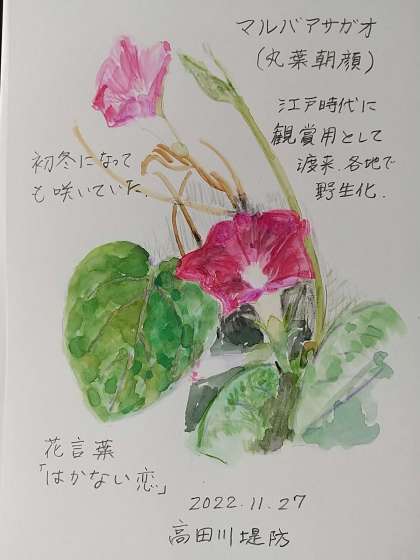 マルバアサガオ
(丸葉朝顔)
江戸時代に
観賞用として
渡来.各地で
野生化.
初冬になって
も咲いていた.
花言葉
「はかない恋」
2022.11.27
高田川堤防